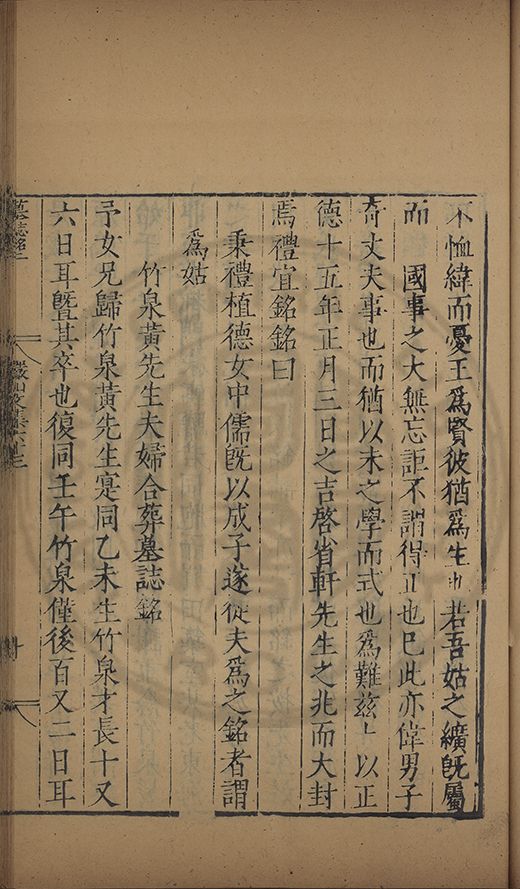 不恤緯而憂王爲賢彼猶爲生也若吾姑之纊既屬
而　國事之大無忘詎不謂得正也已此亦偉男子
奇丈夫事也而猶以未之學而式也爲難茲卜以正
德十五年正月三日之吉啓省軒先生之兆而大封
焉禮宜銘銘曰
秉禮植德女中儒既以成子遂從夫爲之銘者謂
爲姑
竹泉黃先生夫婦合葬墓誌銘
予女兄歸竹泉黃先生寔同乙未生竹泉才長十又
六日耳暨其卒也復同壬午竹泉僅後百又二日耳
墓誌銘